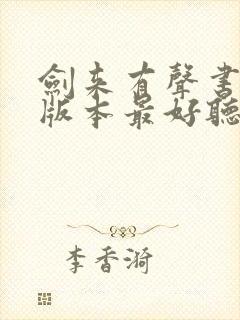 劍来有聲书
版本最好聽
李香漪